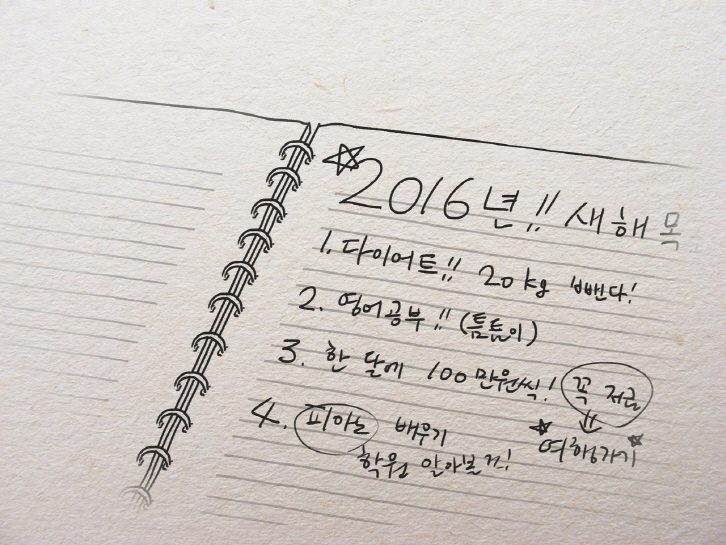 ☆2016년!! 새해 목
1. 다이어트!! 20kg 뺀다!
2. 영어공부!! (틈틈이)
3. 한 달에 100만원씩! 꼭 저금
⇓
★여행가기★
4. 피아노 배우기
학원 알아볼 것!